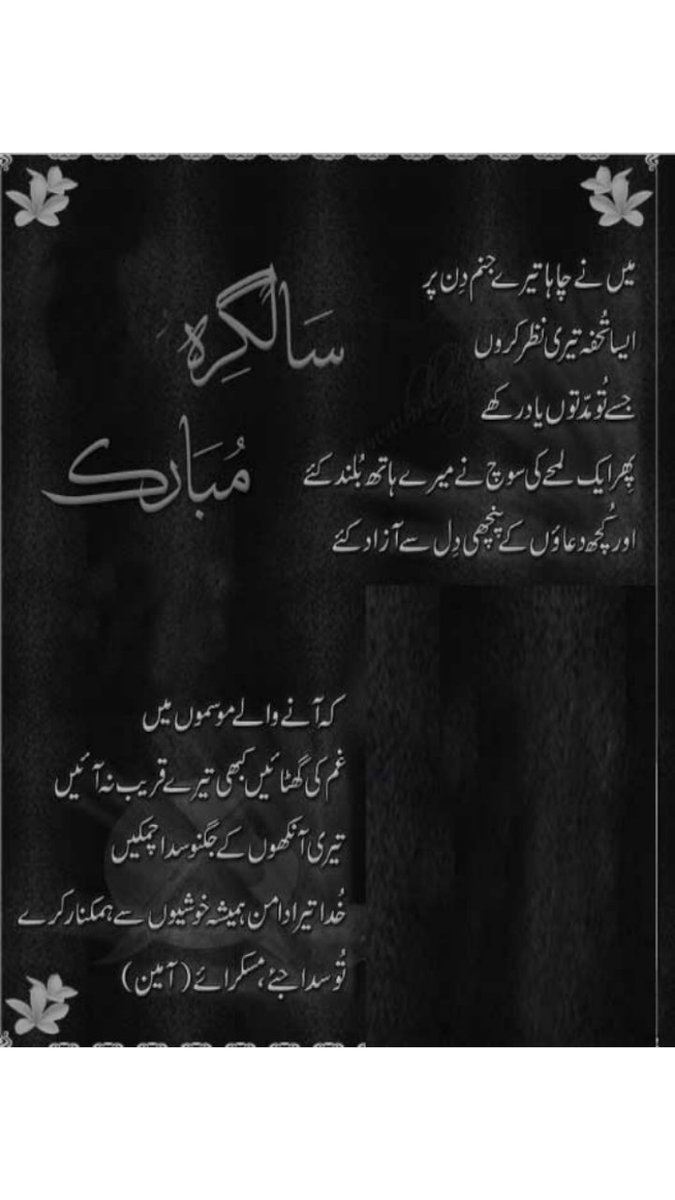 میں نے چاہا تیرے جنم دِن پر
ایسا تُحفہ تیری نظر کروں
جسے تُو مدّتوں یاد رکھے
پھِر ایک لمحے کی سوچ نے میرے ہاتھ بُلند کئے
اور کُچھ دعاؤں کے پنچھی دِل سے آزاد کئے
سَالگِرہ
مُبَارک
کہ آنے والے موسموں میں
غم کی گھٹائیں کبھی تیرے قریب نہ آئیں
تیری آنکھوں کے جگنو سدا چمکیں
خُدا تیرا دامن ہمیشہ خوشیوں سے ہمکنار کرے
تُو سدا جئے، مسکرائے (آمین)